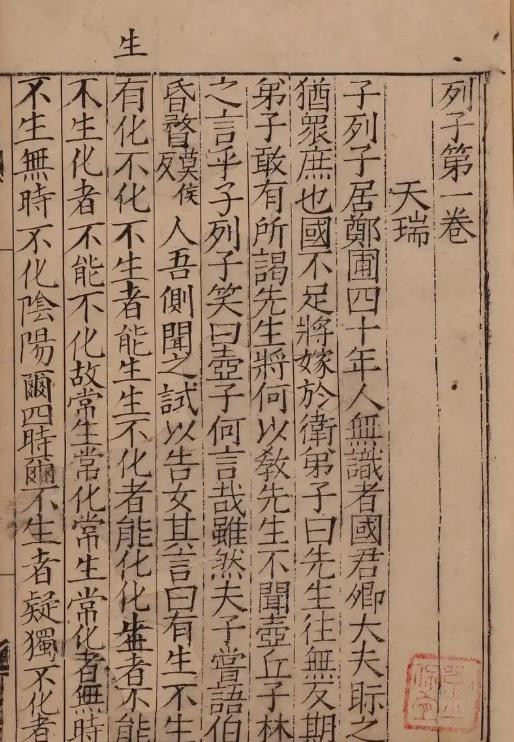 列子第一卷
天瑞
子列子居鄭圃四十年人無識者國君卿大夫眎之
猶眾庶也國不足將嫁於衛弟子曰先生往無反期
弟子敢有所謁先生將何以教先生不聞壺丘子林
之言乎子列子笑曰壺子何言哉雖然夫子嘗語伯
昏瞀莫侯反人吾側聞之試以告女其言曰有生不生
生
有化不化不生者能生生不化者能化化生者不能
不生化者不能不化故常生常化常生常化者無時
不生無時不化陰陽爾四時爾不生者疑獨不化者